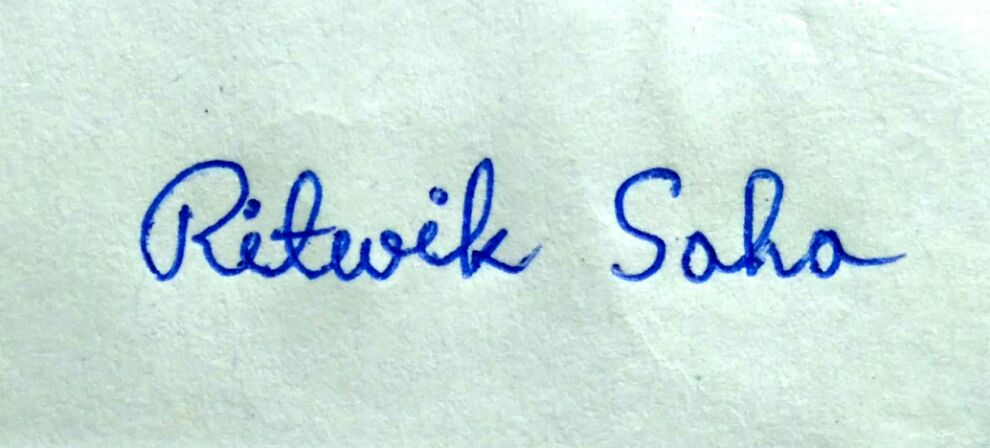 Ritwik Saha